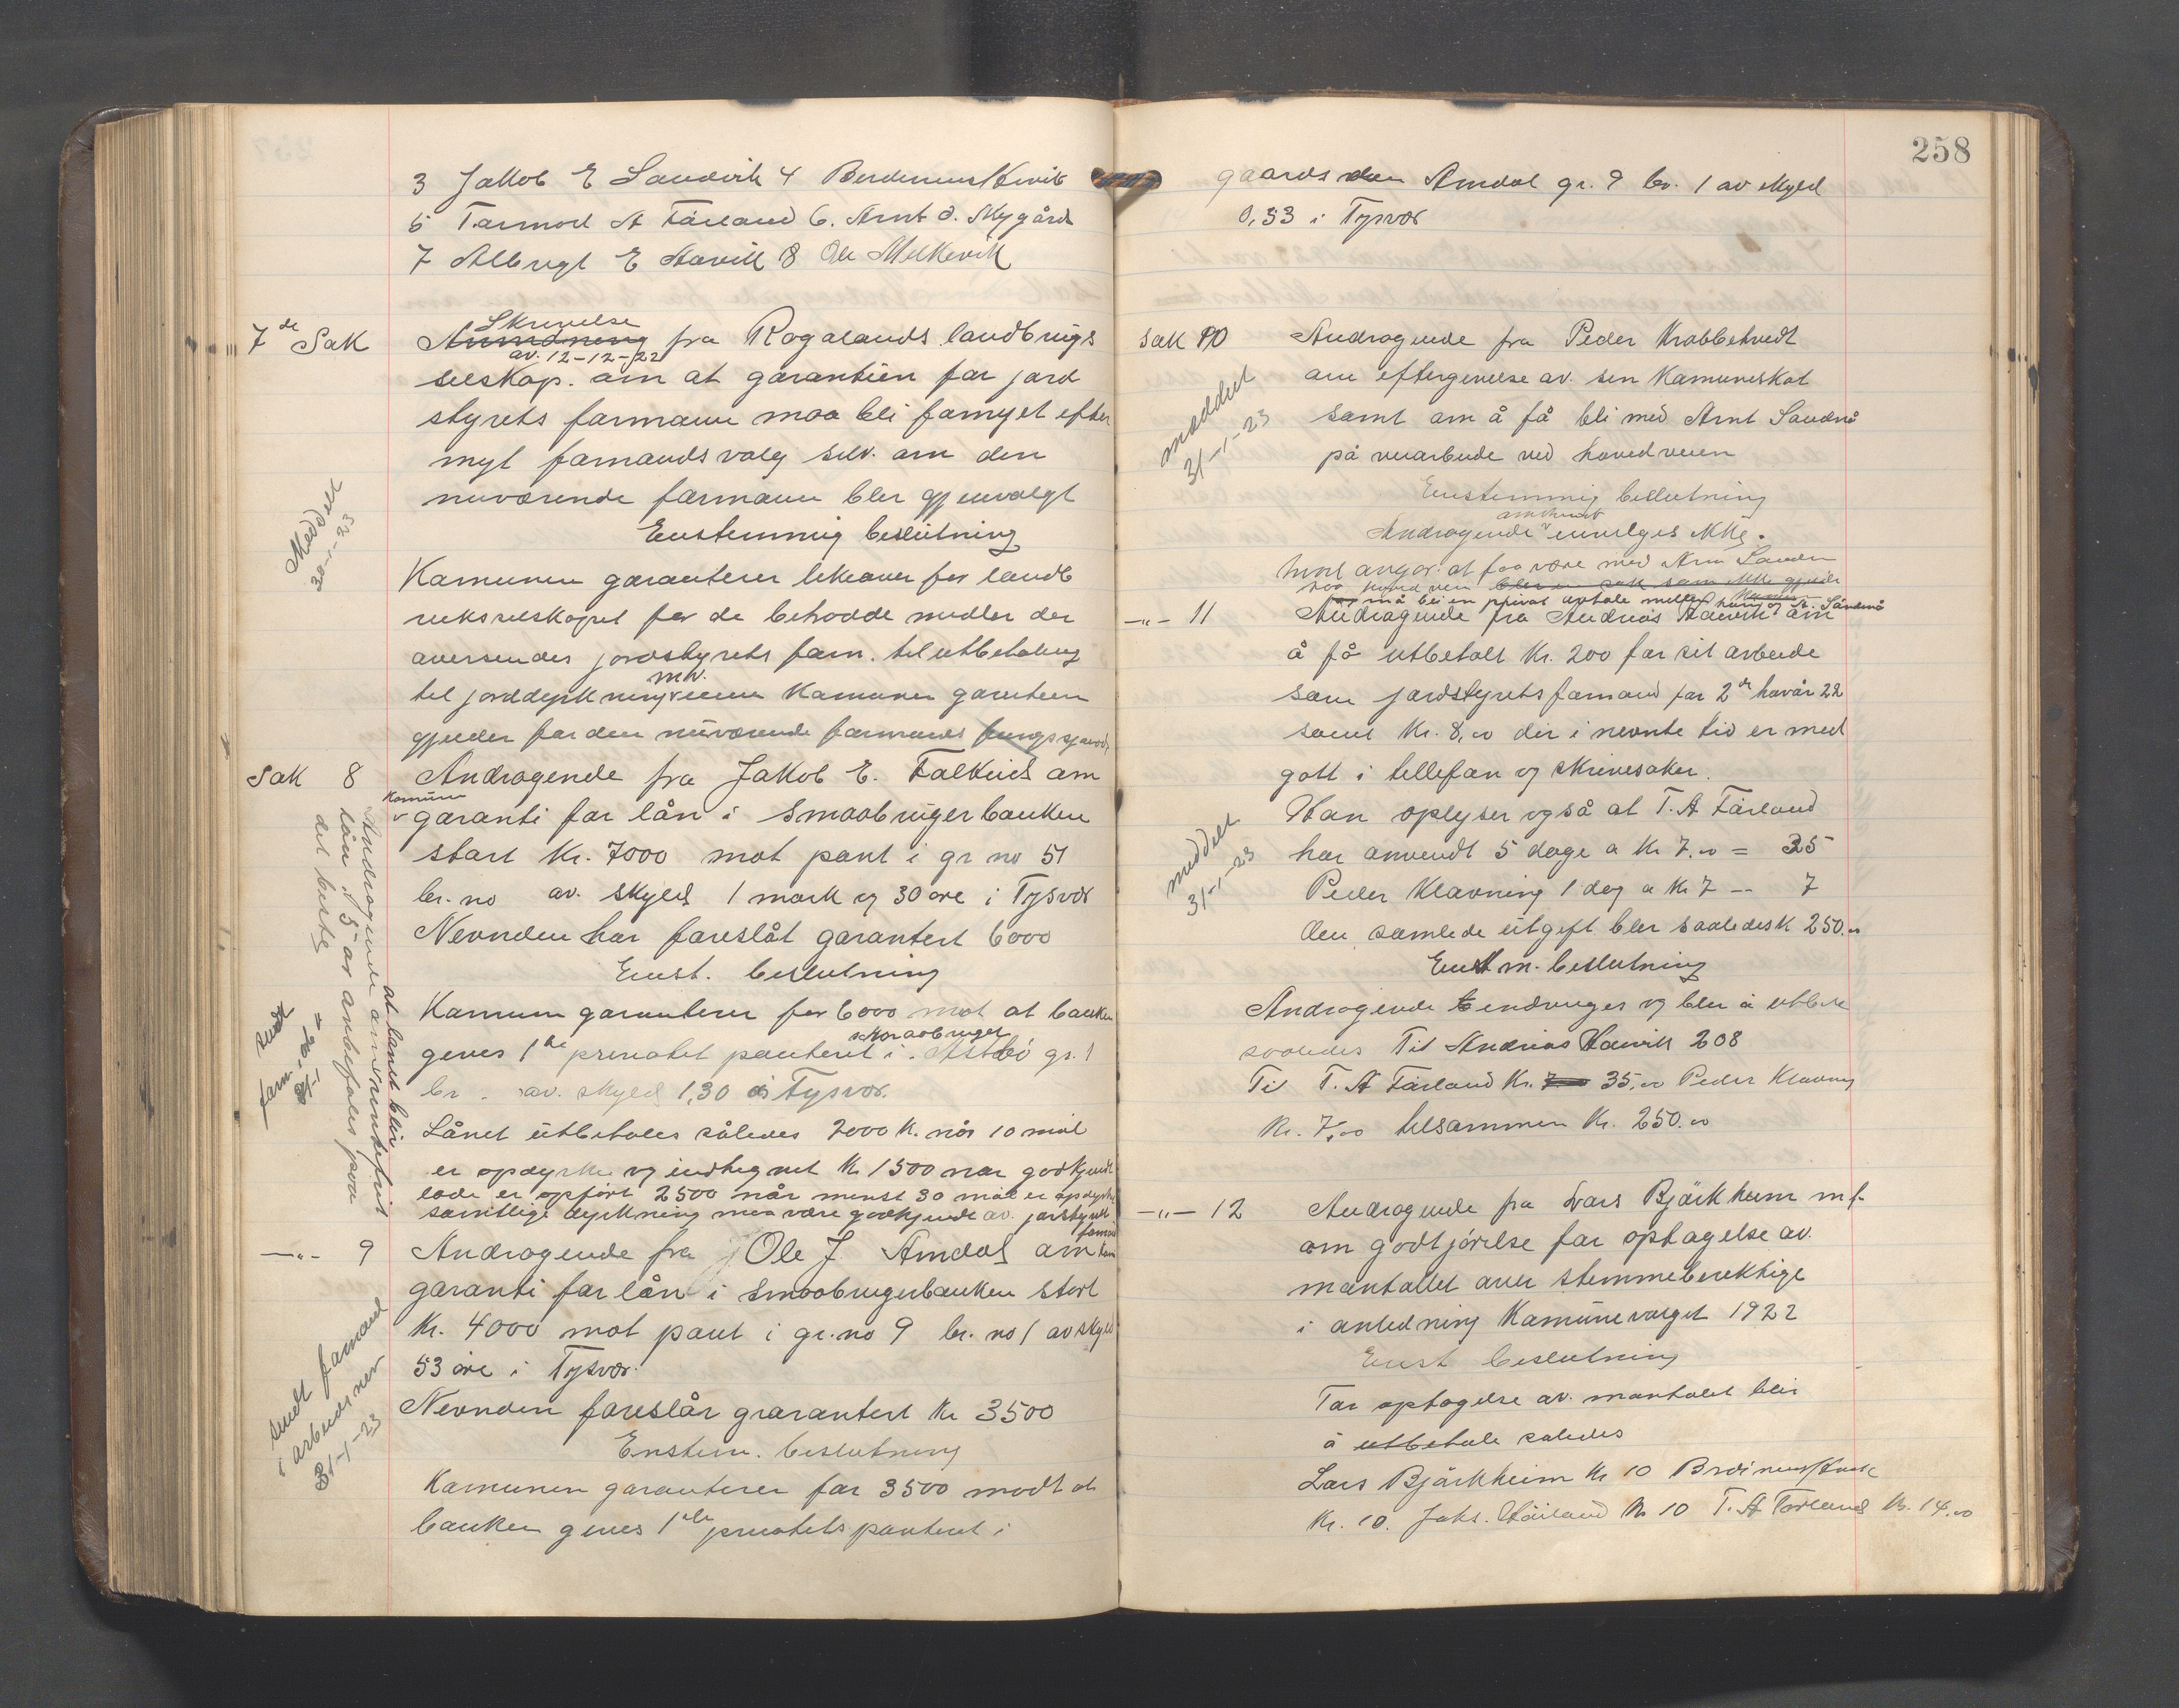 3 Jakob E Sandvik 4
5 Tarmod A Færland 6. Arnt O. Nygård
7 Albregt E Aarvik 8 Ole Melkevik
7de Sak
Skrivelse
fra Rogalands landbrugs
av. 12-12-22
selskap. om at garantien for jord
styrets formann maa bli fornyet efter
nyt formands valg selv. om den
nuværende formann bler gjenvalgt
Enstemmig beslutning
Kamunen garanterer
for de betrodde midler der
oversendes jordstyrets form. til utbetaling
mv.
til jorddyrkning Kamunen garantien
gjelder for den nuværende formands
Meddelt
30-1-23
Sak 8 Andragende fra Jakob E. Falkeid om
Kamune
garanti for lån i smaabrugerbanken
start Kr. 7000 mot pant i gr no 51
br. no av. skyld 1 mark og 30 øre i Tysvær
Nevnden har foreslåt garantert 6000
Enst. beslutning
Kamun garanterer for 6000 mot at banken
smaabruget
gives 1ste prioritet panteret i gr. 1
br . av. skyld 1,30 i Tysvær.
Lånet utbetales således 2000 K. når 10 mål
er opdyrket og indhegnet Kr 1500 når godkjendt
løde er opført 2500 når minst 30 mål er opdyrket
samtlige dyrkning maa være godkjendt av jorstyrets
formand
Andragende om rentefrit
lån i 5 år anbefales paa
det beste
at lånet blir
sendt
form.
31-1
-"- 9 Andragende fra Ole J. Amdal om kom
garanti for lån i smaabrugerbanken stort
Kr. 4000 mot pant i gr. no 9 br. no 1 av skyld
53 øre i Tysvær.
Nevnden foreslår garantert Kr 3500
Enstem. beslutning
Kamunen garanterer for 3500 modt at
banken gives 1ste prioritets panteret i
sendt formand
i arbeidsnev
31-1-23
258
gaards Amdal gr. 9 br. 1 av skyld
0,53 i Tysvær
Sak 10 Andragende fra Peder Krabbetvedt
om eftergivelse av. sin Kamuneskat
samt om å få bli med Arnt Sandnå
på veiarbeide ved hovedveien
Enstemmig beslutning
Andragende innvilges ikke.
hvad angår. at faa være med Arn Sanden
ved hovedveien bler en sak som ikke gjelder
må bli en privat avtale mellem ham og A. Sandnå
meddelt
31-1-23
-"- 11 Andragende fra Andreas Aarvik om
å få utbetalt Kr. 200 for sit arbeide
som jordstyrets formand for 2det havår 22
samt Kr. 8,00 der i nevnte tid er med
gått i tellefon og skrivesaker.
Han oplyser også at T. A Færland
har anvendt 5 dage a Kr 7.00 = 35
Peder Klovning 1 dag a Kr 7 -- 7
den samlede utgift bler saaledes K 250.00
Enst m. beslutning
Andragende og bler å utbetale
saaledes Til Andreas Aarvik 208
Til T. A Færland Kr. 35.00 Peder Klovning
Kr. 7,00 tilsammen Kr. 250.00
meddelt
31-1-23
-"- 12 Andragende fra Lars Bjørkheim m f.
om godtjørelse for optagelse av.
mantallet over stemmeberettige
i anledning Kamunevalget 1922
Enst beslutning
For optagelse av. mantalet blir
å utbetale saledes
Lars Bjørkheim Kr 10
Kr. 10. Johs. Kr 10 T. A Førland Kr. 14.00